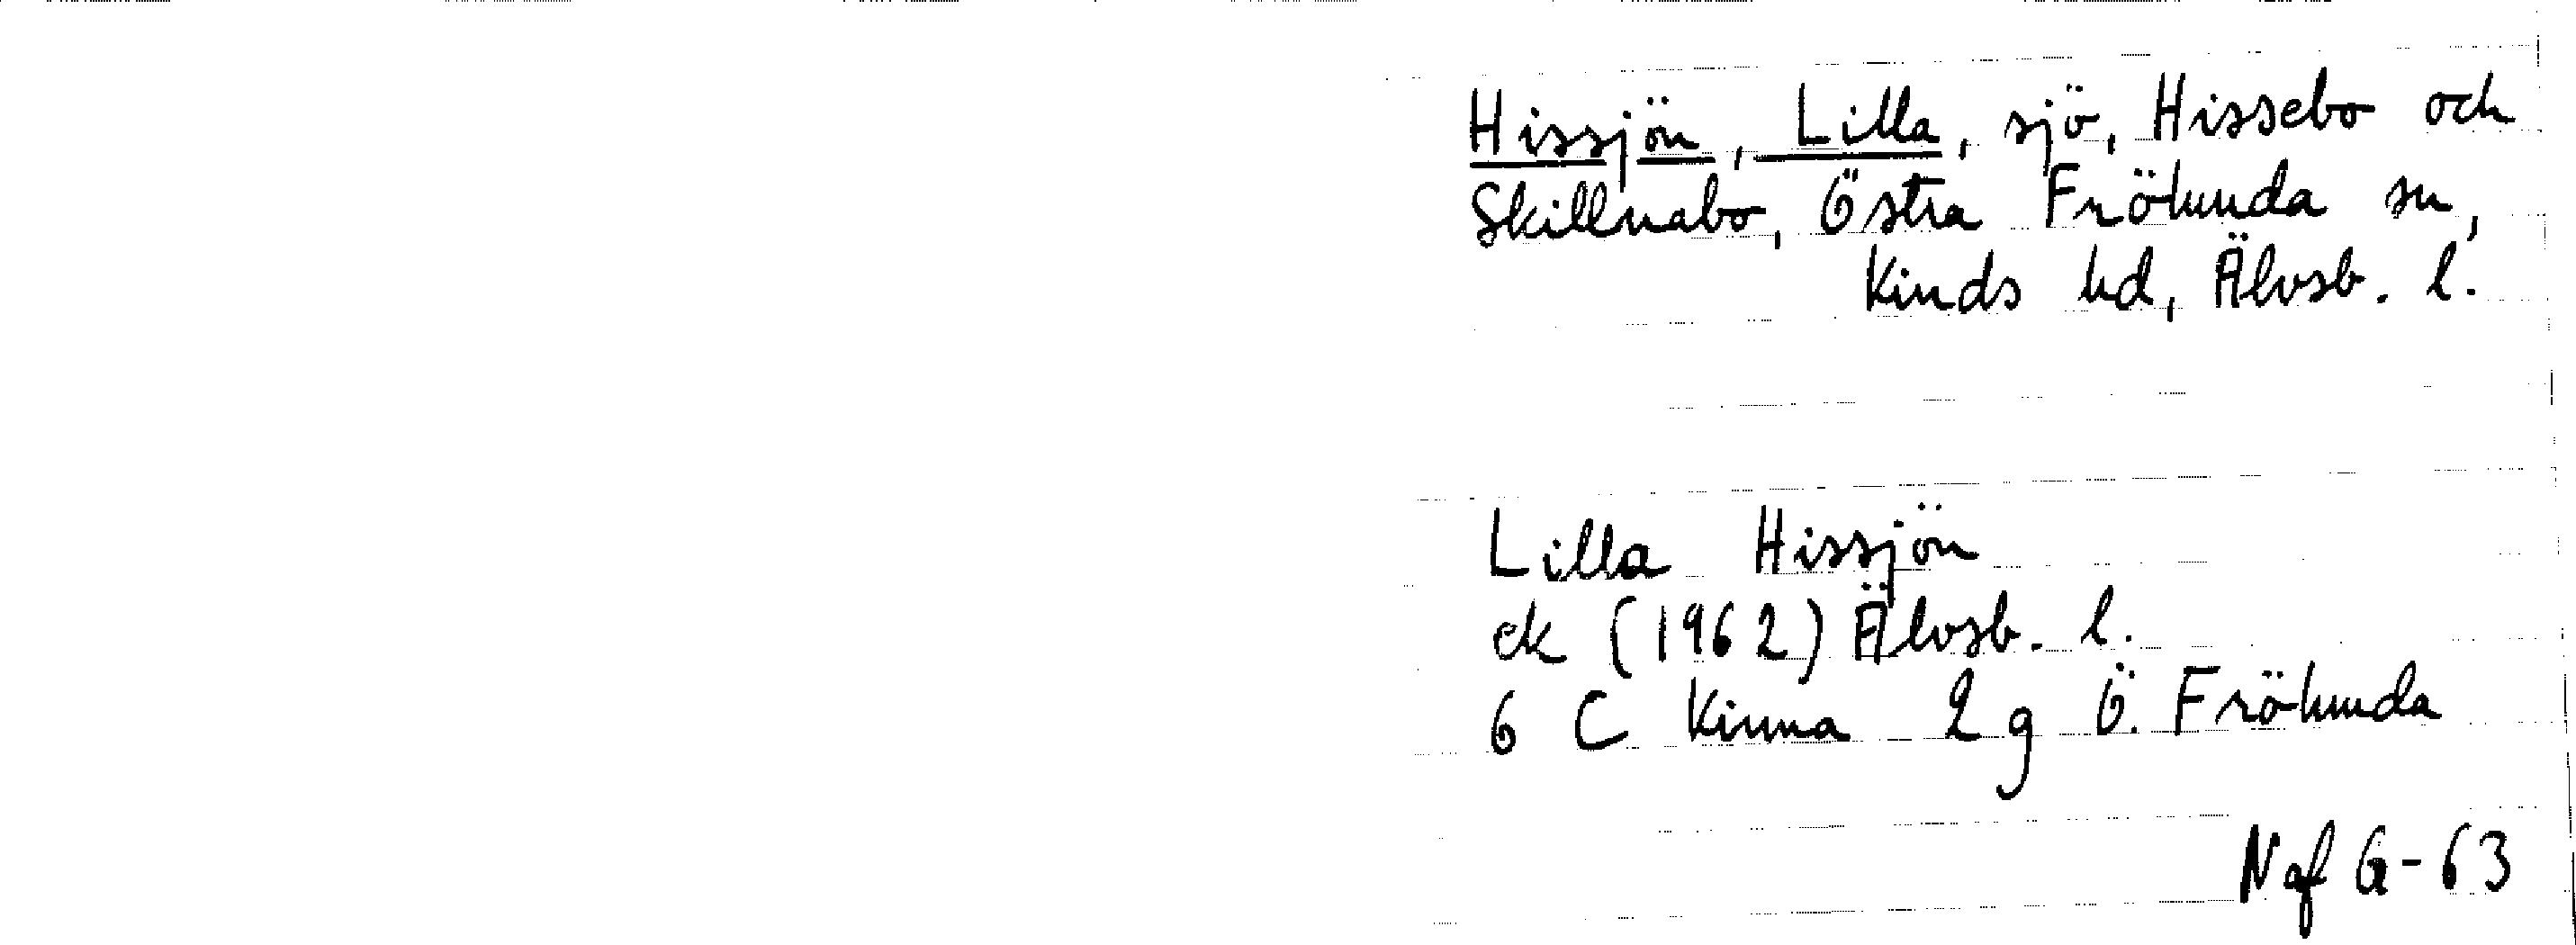 Hissjön, Lilla, sjö, Hissebo och
Skillnabo, Östra Frölunda sn,
Kinds hd, Älvsb. l.
Lilla Hissjön
ek (1962) Älvsb. l.
6 C Kinna 2 g Ö. Frölunda